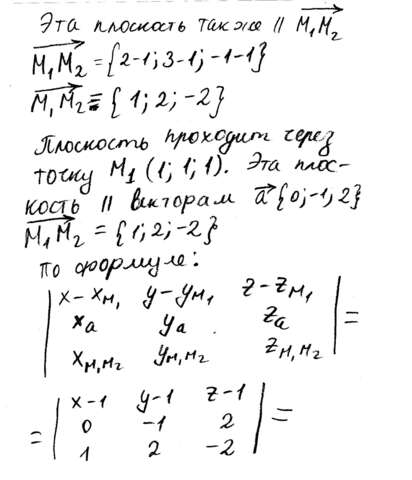 Эта плоскость также || M₁M₂
M₁M₂ = {2-1; 3-1; -1-1}
M₁M₂ = {1; 2; -2}
Плоскость проходит через
точку M₁ (1; 1; 1). Эта плос-
кость || векторам a {0; -1; 2}
M₁M₂ = {1; 2; -2}
по формуле:
| x - x_M₁ y - y_M₁ z - z_M₁ |
| x_a y_a z_a | =
| x_M₁M₂ y_M₁M₂ z_M₁M₂ |
| x-1 y-1 z-1 |
= | 0 -1 2 | =
| 1 2 -2 |